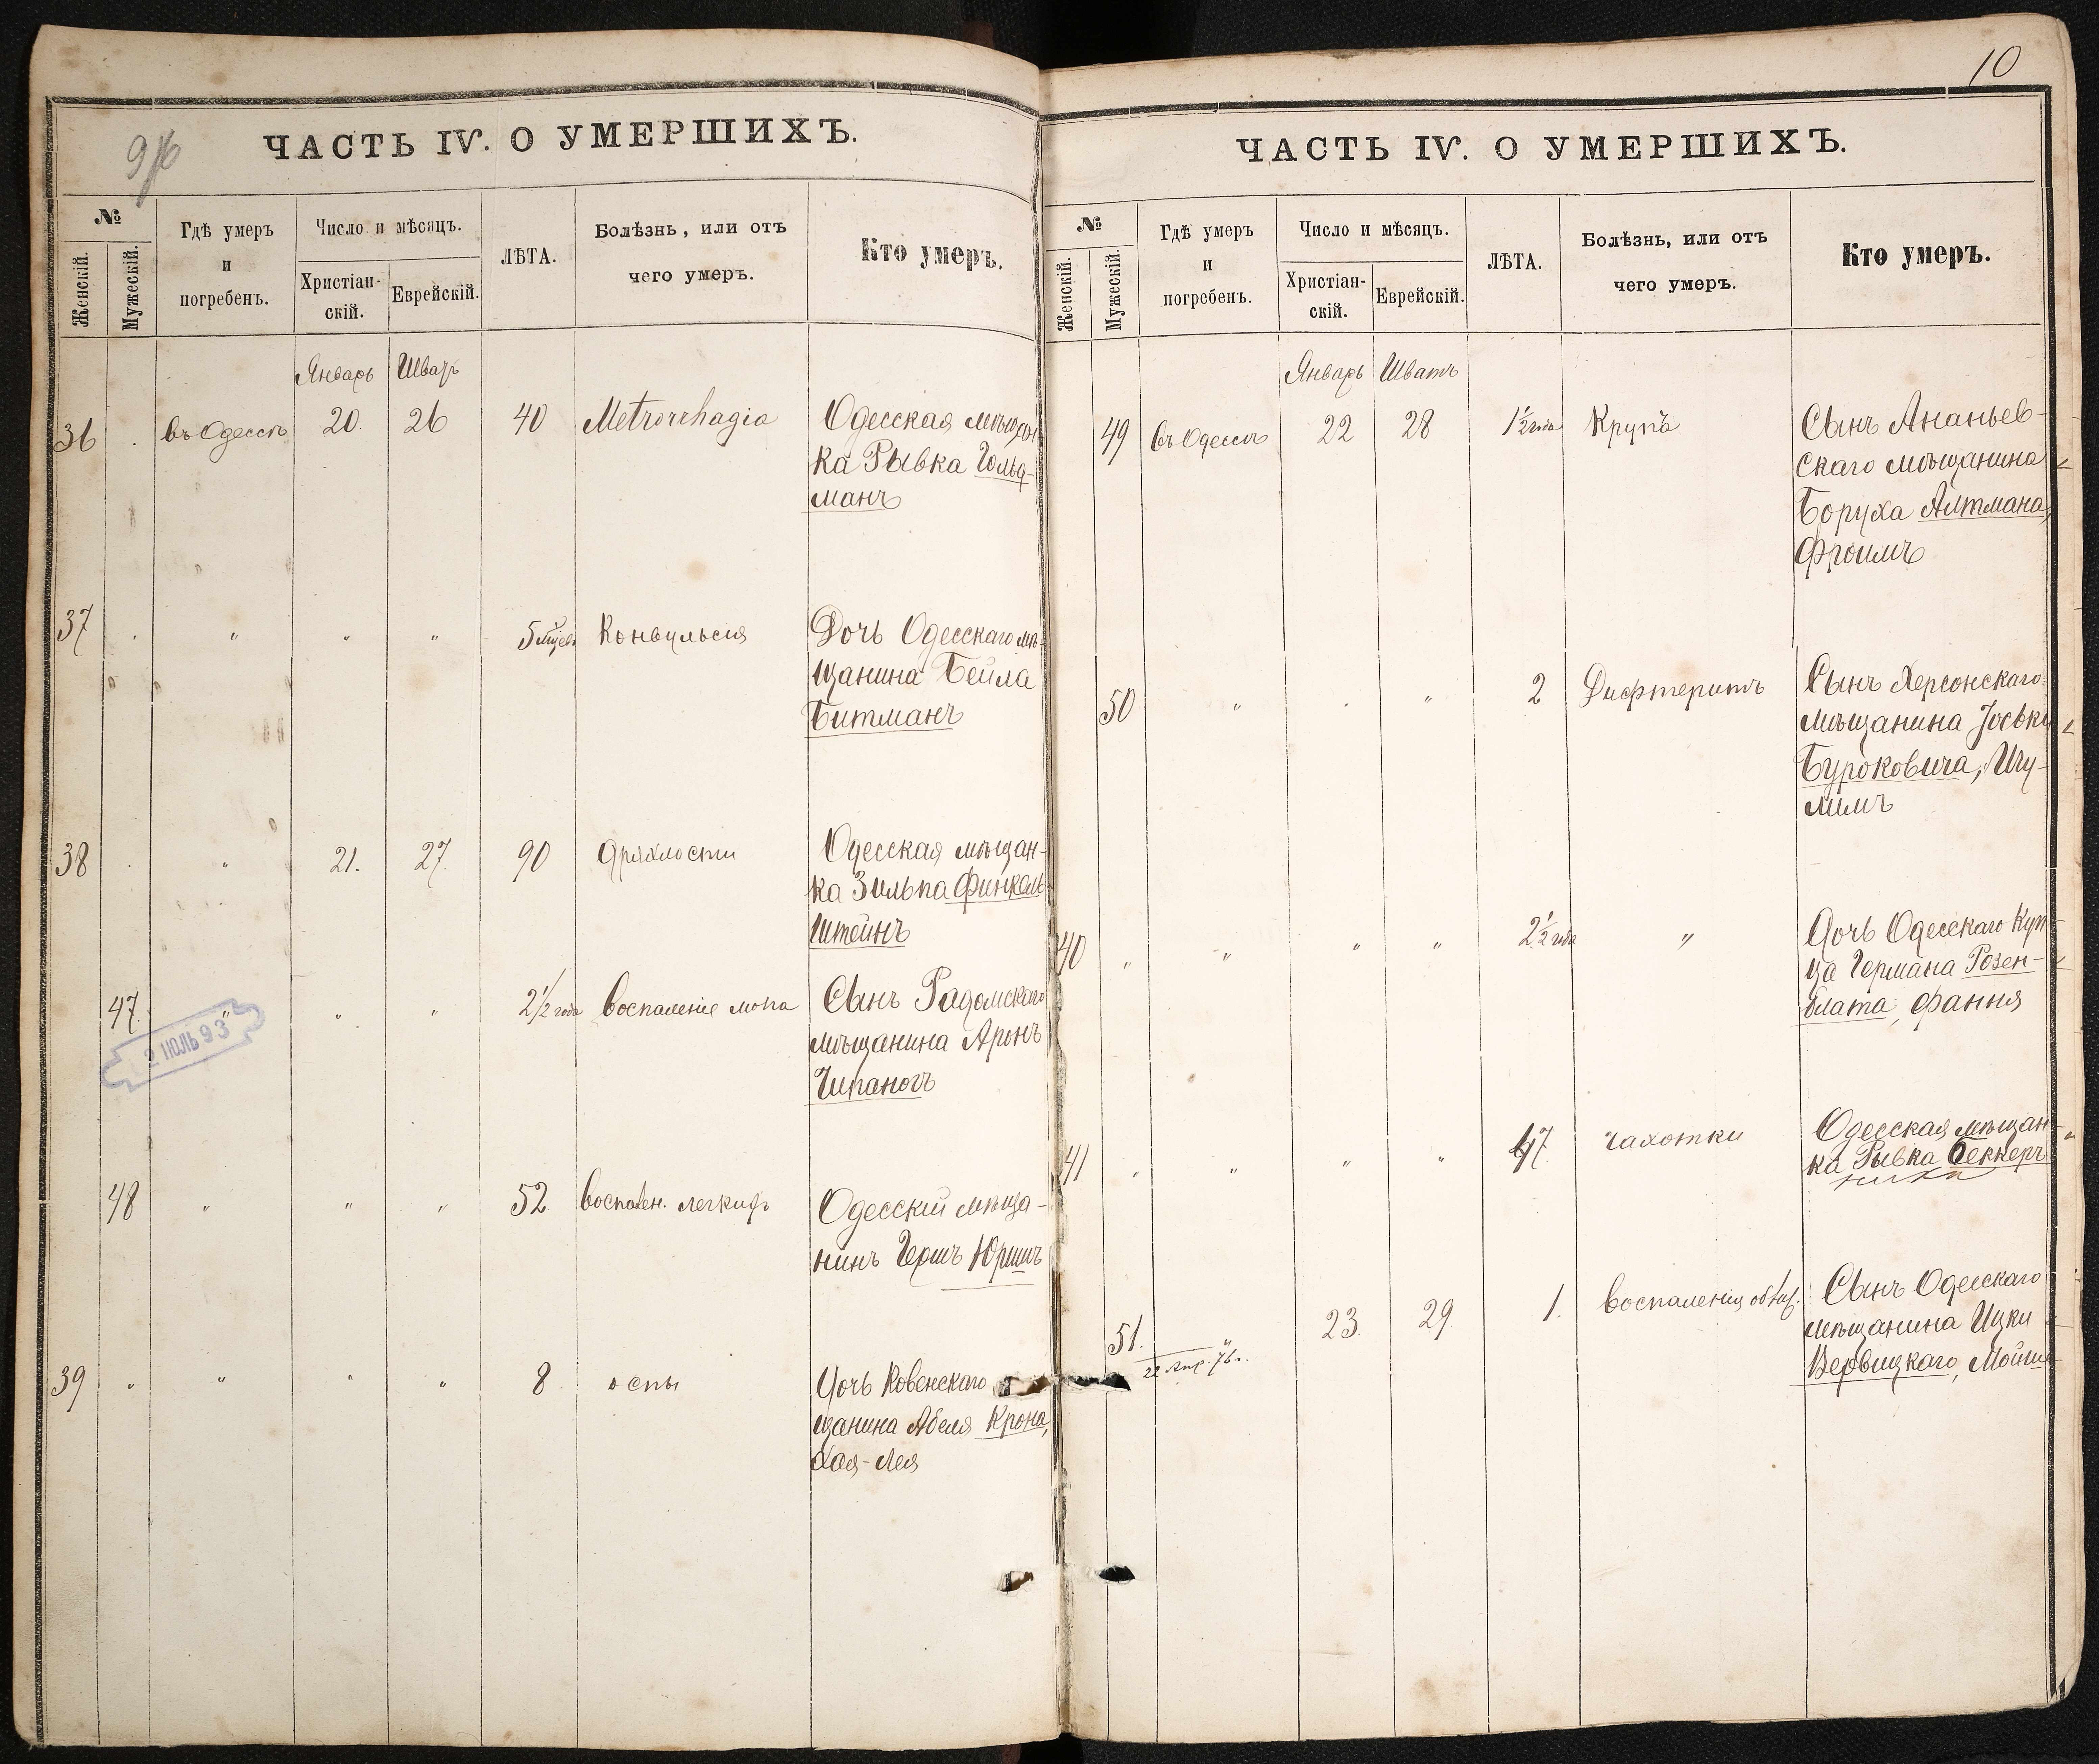 ЧАСТЬ IV. О УМЕРШИХЪ.
№
Женскій.
Мужескій.
Гдѣ умеръ
и
погребенъ.
Число и мѣсяцъ.
Христіан-
скій.
Еврейскій.
ЛѢТА.
Болѣзнь, или отъ
чего умеръ.
Кто умеръ.
Январь
36 въ Одессѣ 20. 26 40 Metrorrhagia Одесская мѣщан
ка Рывка Гольд-
манъ
37 . " " " 5 Конвульсія Дочь Одесскаго мѣ-
щанина Бейла
Битманъ
38 . " 21. 27. 90 дряхлости Одесская мѣщан-
ка Зильпа Финкель
штейнъ
47. " " " 2 1/2 года Воспаленіе Сынъ Радомскаго
мѣщанина Аронъ
2 ІЮЛЬ 93
48 " " " 52 воспален. легкихъ Одесскій мѣща-
нинъ Гершъ Юршъ
39 " " " " 8 оспы Дочь Ковенскаго
щанина Абеля Крона,
Хая-Лея
10
ЧАСТЬ IV. О УМЕРШИХЪ.
№
Женскій.
Мужескій.
Гдѣ умеръ
и
погребенъ.
Число и мѣсяцъ.
Христіан-
скій.
Еврейскій.
ЛѢТА.
Болѣзнь, или отъ
чего умеръ.
Кто умеръ.
Январь Шватъ
49 въ Одессѣ 22 28 1 1/2 года Крупъ Сынъ Ананьев-
скаго мѣщанина
Боруха Алтмана,
Фроимъ
50 " " " 2 Дифтеритъ Сынъ Херсонскаго
мѣщанина Іоськи
Буроковича, Шу-
лимъ
40 " " " " 2 1/2 года " Дочь Одесскаго Куп-
ца Германа Розен-
блата, Фання
41 " " " " 47. чахотки Одесская мѣщан-
ка Рывка Беккеръ
51. " 23. 29. 1. Воспаленія Сынъ Одесскаго
22 Апр. 76 г. мѣщанина Ицки
Вербицкаго,